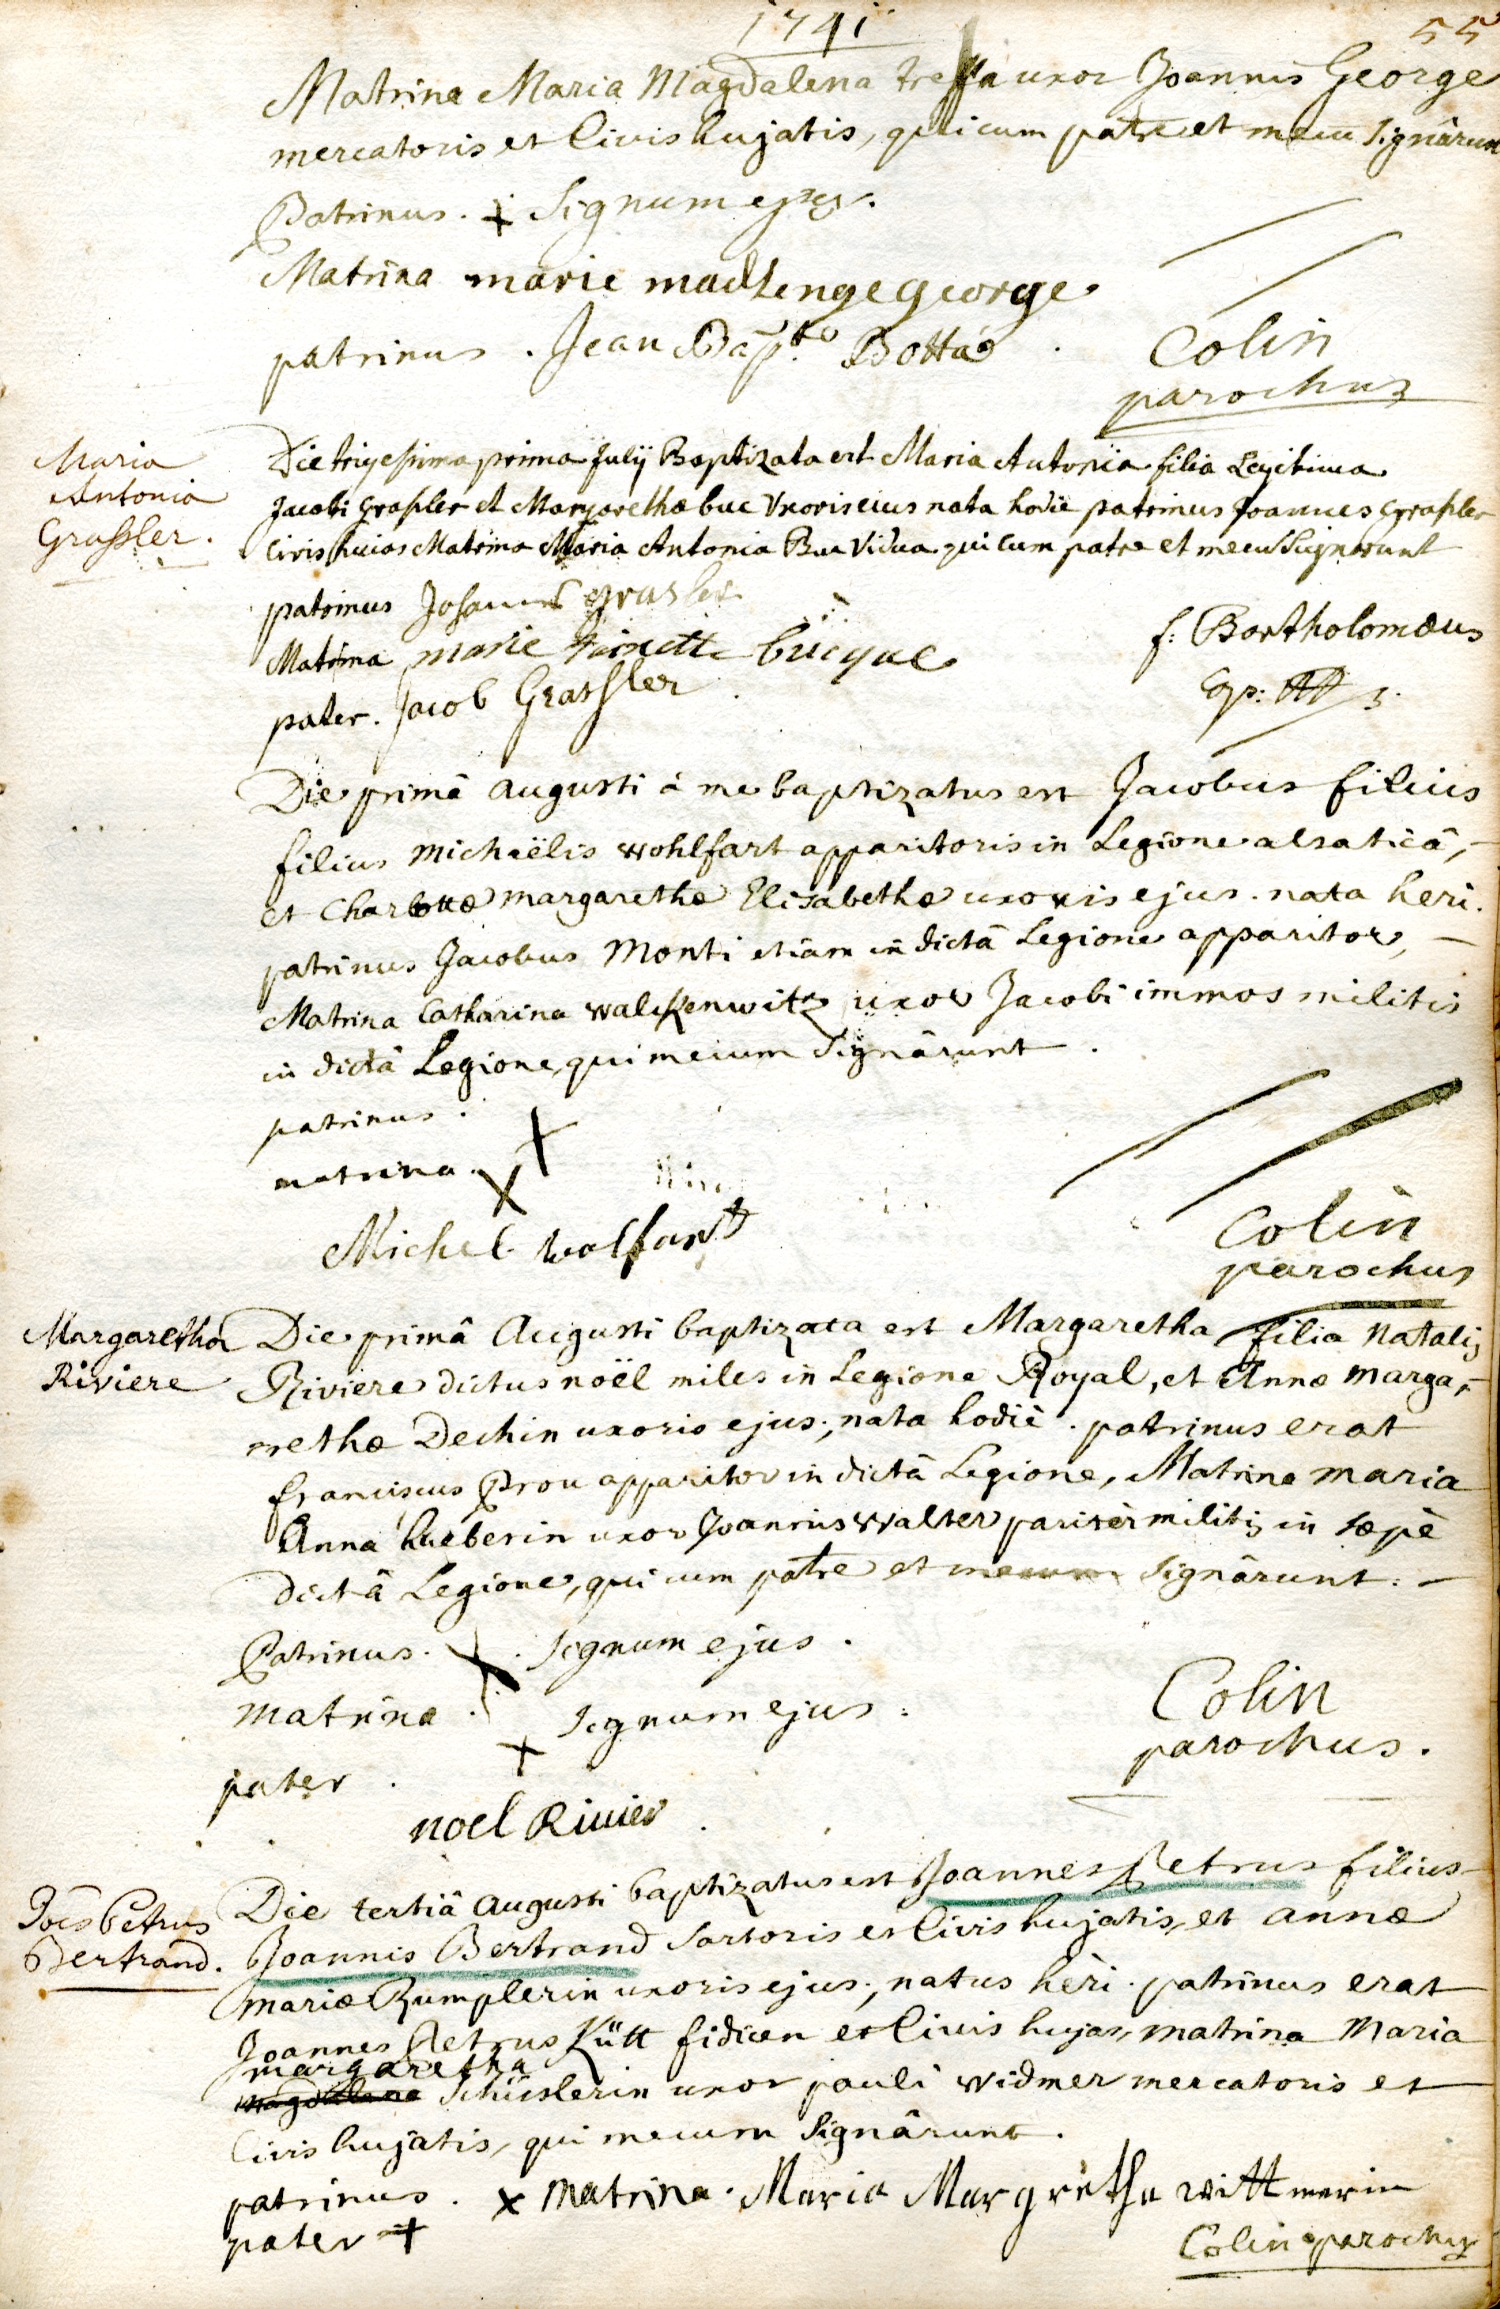 1741
55
Matrina Maria Magdalena tressa uxor Joannis George
mercatoris et Civis hujatis, qui cum patre et mecu signârunt
Patrinus. + Signum ejus.
Matrina marie madlenge george
patrinus. Jean Bapt. Botta
Colin
parochus
Maria
Antonia
Grassler.
Die trigesima prima Julij Baptizata est Maria Antonia filia Legitima
Jacobi Grassler et Margarethæ buc Uxoris eius nata hodie patrinus Joannes Grassler
Civis huias Matrina Maria Antonia Buc Vidua qui cum patre et mecu Signarunt
patrinus Johannes grasler
Matrina marie toinette bücque
pater. Jacob Grassler
f: Bartholomæus
Cap:
Die primâ augusti à me baptizatus est Jacobus filius
filius Michaëlis wohlfart apparitoris in Legione alsaticâ,
et Charlottæ margarethæ Elisabethæ uxoris ejus. nata heri.
patrinus Jacobus Monti etiam in dictâ Legione apparitor,
Matrina Catharina walckenwitz uxor Jacobi immos militis
in dictâ Legione, qui mecum signârunt.
patrinus. X
matrina. X
Michel wolfart
Colin
parochus
Margaretha
Riviere
Die primâ Augusti baptizata est Margaretha filia Natalis
Riviere dictus noël miles in Legione Royal, et Annæ marga-
rethæ Dechin uxoris ejus; nata hodiè. patrinus erat
franciscus Prou apparitor in dictâ Legione, Matrina maria
Anna hueberin uxor Joannis Walter paritèr militis in sæpè
dictâ Legione, qui cum patre et mecum signârunt.
Patrinus. X. signum ejus.
Matrina. + signum ejus.
pater.
noel Riuier
Colin
parochus.
Joës Petrus
Bertrand.
Die tertiâ augusti baptizatus est Joannes Petrus filius
Joannis Bertrand sartoris et Civis hujatis, et annæ
mariæ Rumplerin uxoris ejus; natus hèri. patrinus erat
Joannes Petrus Kütt fidicen et Civis hujas, matrina Maria
margaretha
magdalena Schüslerin uxor pauli widmer mercatoris et
Civis hujatis, qui mecum signârunt.
patrinus. x matrina. Maria Margretha wittmerin
pater +
Colin parochus